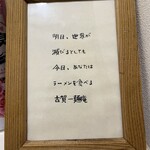 明日、世界が
滅びるとしても
今日、あなたは
ラーメンを食べる
古賀一麺庵